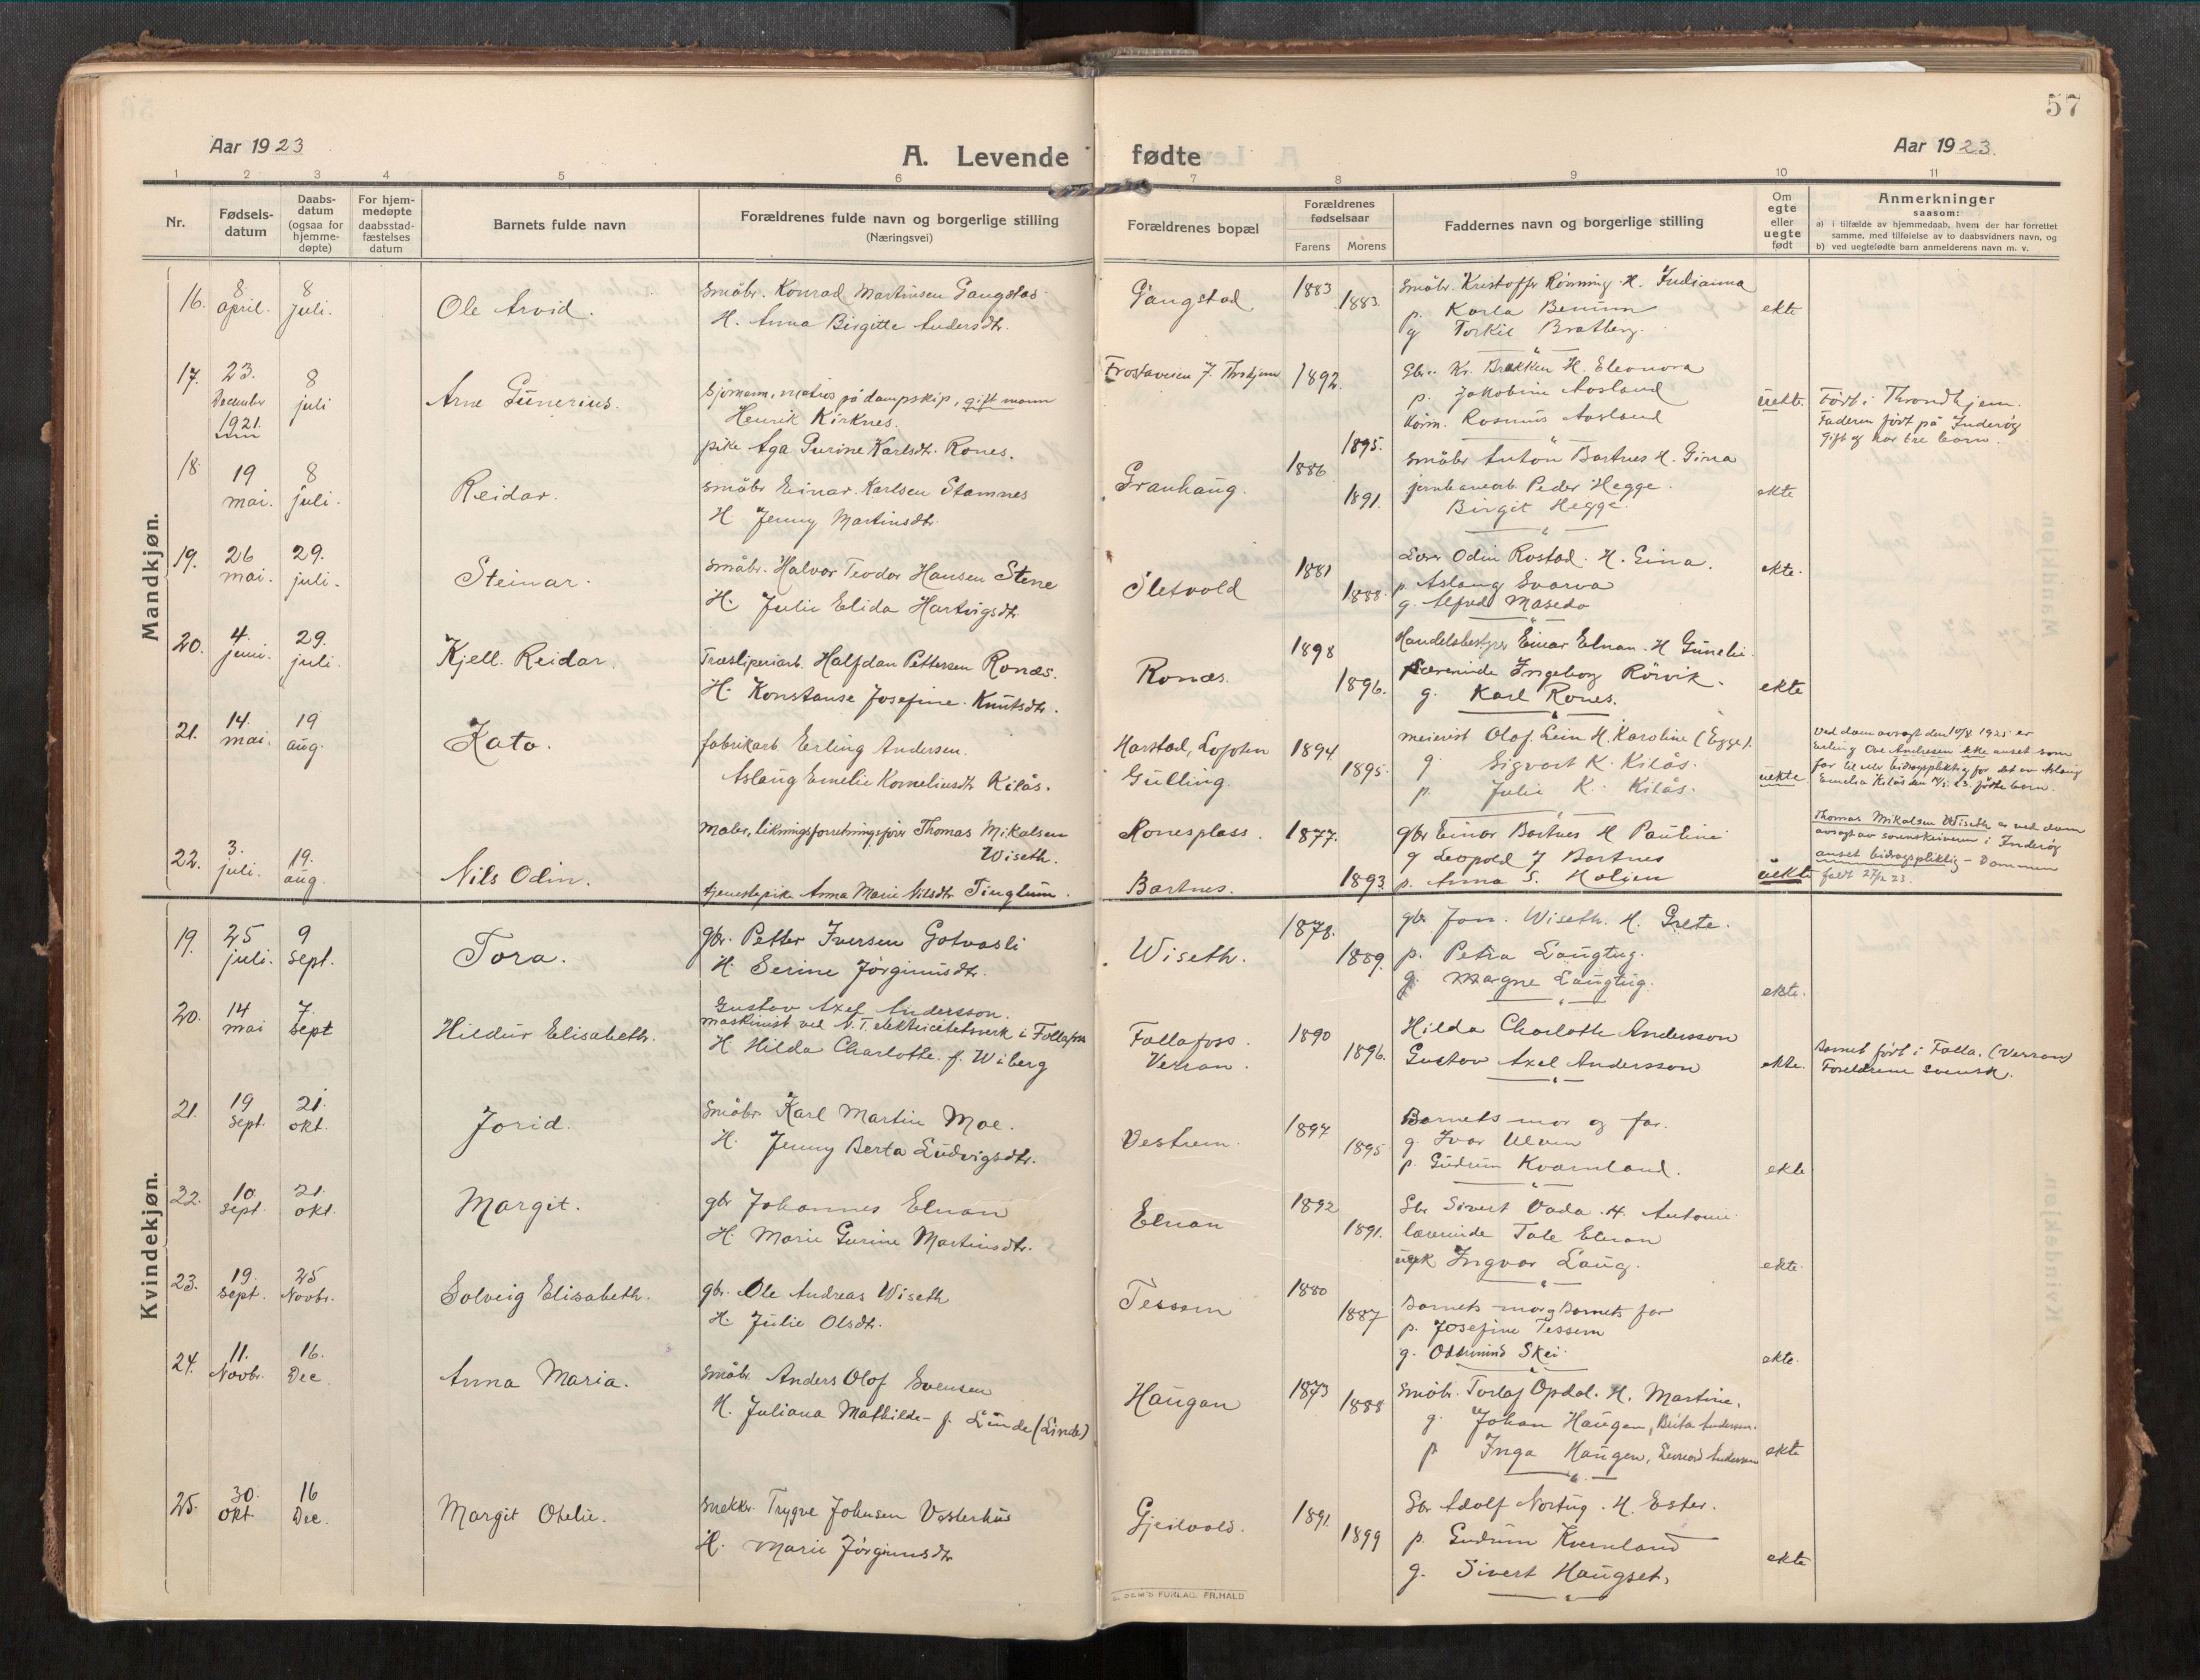 57
Aar 1923
A. Levende fødte
Aar 1923.
1 2 3 4 5 6 7 8 9 10 11
Nr.
Fødsels-
datum
Daabs-
datum
(ogsaa for
hjemme-
døpte)
For hjem-
medøpte
daabsstad-
fæstelses
datum
Barnets fulde navn
Forældrenes fulde navn og borgerlige stilling
(Næringsvei)
Forældrenes bopæl
Forældrenes
fødselsaar
Farens Morens
Faddernes navn og borgerlige stilling
Om
egte
eller
uegte
født
Anmerkninger
saasom:
a) i tilfælde av hjemmedaab, hvem der har forrettet
samme, med tilføielse av to daabsvidners navn, og
b) ved uegtefødte barn anmelderens navn m. v.
Mandkjøn.
16. 8 april. 8 juli.
Ole Arvid.
Småbr. Konrad Martinsen Gangstad
H. Anna Birgitte Andersdtr.
Gangstad
1883
1883.
Småbr. Kristoffer Rönning. H. Indianna
p. Karla Benum
g Torkil Bratberg.
ekte
17. 23. December 1921. 8 juli
Arne Gunerius.
Sjömann, matros på dampskip, gift mann
Henrik Kirknes.
pike Aga Gurine Karlsdtr. Rones.
1892.
1895.
Gbr. Kr. Brakken H. Eleonora
p. Jakobine Aasland
Rasmus Aasland
uekte.
Född i Throndhjem.
Faderen född på Inderöy
Gift og har tre barn.
18. 19 mai. 8 juli.
Reidar.
Småbr Einar Karlsen Stamnes
H. Jenny Martinsdtr.
Granhaug.
1886
1891.
Småbr Anton Bartnes H. Gina
jernbanearb. Peder Hegge.
Birgit Hegge.
ekte
19. 26 mai. 29. juli.
Steinar.
Småbr. Halvor Teodor Hansen Stene
H. Julie Elida Hartvigsdtr.
Sletvold
1881
1888.
Lærer Odin Rostad. H. Gina.
p. Aslaug Svarva
g. Alfred Masedo
ekte.
20. 4. juni. 29. juli.
Kjell Reidar.
Træsliperiarb. Halfdan Pettersen Ronæs.
H. Konstanse Josefine Knutsdtr.
Ronæs.
1898
1896.
Handelsbestyrer Einar Elnan. H Gunelie.
Lærerinde Ingeborg Rörvik.
g. Karl Rones.
ekte
21. 14. mai. 19 aug.
Kato.
fabrikarb. Erling Andersen.
Aslaug Emelie Korneliusdtr Kilås.
Harstad, Lofoten
Gulling.
1894
1895.
meierist Olaf Lein H. Karoline (Egge).
g. Sigvart K. Kilås.
p. Julie K. Kilås.
uekte
Ved dom avsagt den 10/8 1925 er
Erling Ove Andresen ikke anset som
far til eller bidragspliktig for det av Aslaug
Emelie Kilås den 14/5. 23. födte barn.
22. 3. juli. 19. aug.
Nils Odin.
Maler, likningsforretningsförer Thomas Mikalsen
Wiseth.
tjenestepike Anna Marie Nilsdtr Tinglum.
Ronesplass.
Bartnes.
1877.
1893
gbr Einar Bartnes H Pauline
g Leopold J Bartnes
p. Anna S. Moljen
uekte
Thomas Mikalsen Wiseth er ved dom
avsagt av sorenskriveren i Inderöy
anset bidragspliktig - Dommen
faldt 27/12 23.
Kvindekjøn.
19. 25 juli. 9 Sept.
Tora.
Gbr. Petter Iversen Gotvasli
H. Serine Jörginusdtr.
Wiseth.
1878.
1889.
gbr Jon. Wiseth. H. Grete.
p. Petra Langtug.
g. Magne Langtug.
ekte.
20. 14 mai 7. Sept
Hildur Elisabeth.
Gustav Axel Andersson.
maskinist ved N.T. elektricitetsverk i Follafoss
H. Hilda Charlotte f. Wiberg
Follafoss.
Verran.
1890
1896.
Hilda Charlotte Andersson
Gustav Axel Andersson
ekte.
Barnet född i Folla. (Verran)
Foreldrene svensk.
21. 19 Sept. 21. okt.
Jorid.
Småbr Karl Martin Moe.
H. Jenny Berta Ludvigsdtr.
Vestrum.
1897
1895
Barnets mor og far.
g. Ivar Ulven
p. Gudrun Kvarnland.
ekte
22. 10. Sept. 21. okt.
Margit.
gbr Johannes Elnan
H. Marie Gurine Martinsdtr.
Elnan
1892
1891.
Gbr Sivert Vada. H. Antonie
lærerinde Tale Elnan
Ingvar Laug.
ekte.
23. 19. Sept. 25 Novbr.
Solveig Elisabeth.
gbr. Ole Andreas Wiseth
H. Julie Olsdtr.
Tessem
1880
1887
Barnets mor og Barnets far
p. Josefine Tessem
g. Oddmund Skei.
ekte.
24. 11. Novbr. 16. Dec.
Anna Maria.
Småbr Anders Olof Svensen
H. Juliana Mathilde f. Lunde (Linde)
Haugan
1873
1888
Småbr. Torlaf Opdal. H. Martine,
g. Johan Haugen, Brita Andersen.
p Inga Haugen, Andersen
ekte
25. 30. okt. 16 Dec.
Margit Otelie.
Snekkr. Trygve Johnsen Vesterhus
H. Marie Jörginusdtr
Gjeilvold.
1891.
1899
Gbr Adolf Nortug. H. Ester.
p. Gudrun Kvernland
g. Sivert Haugset.
ekte
FORLAG. FR.HALD